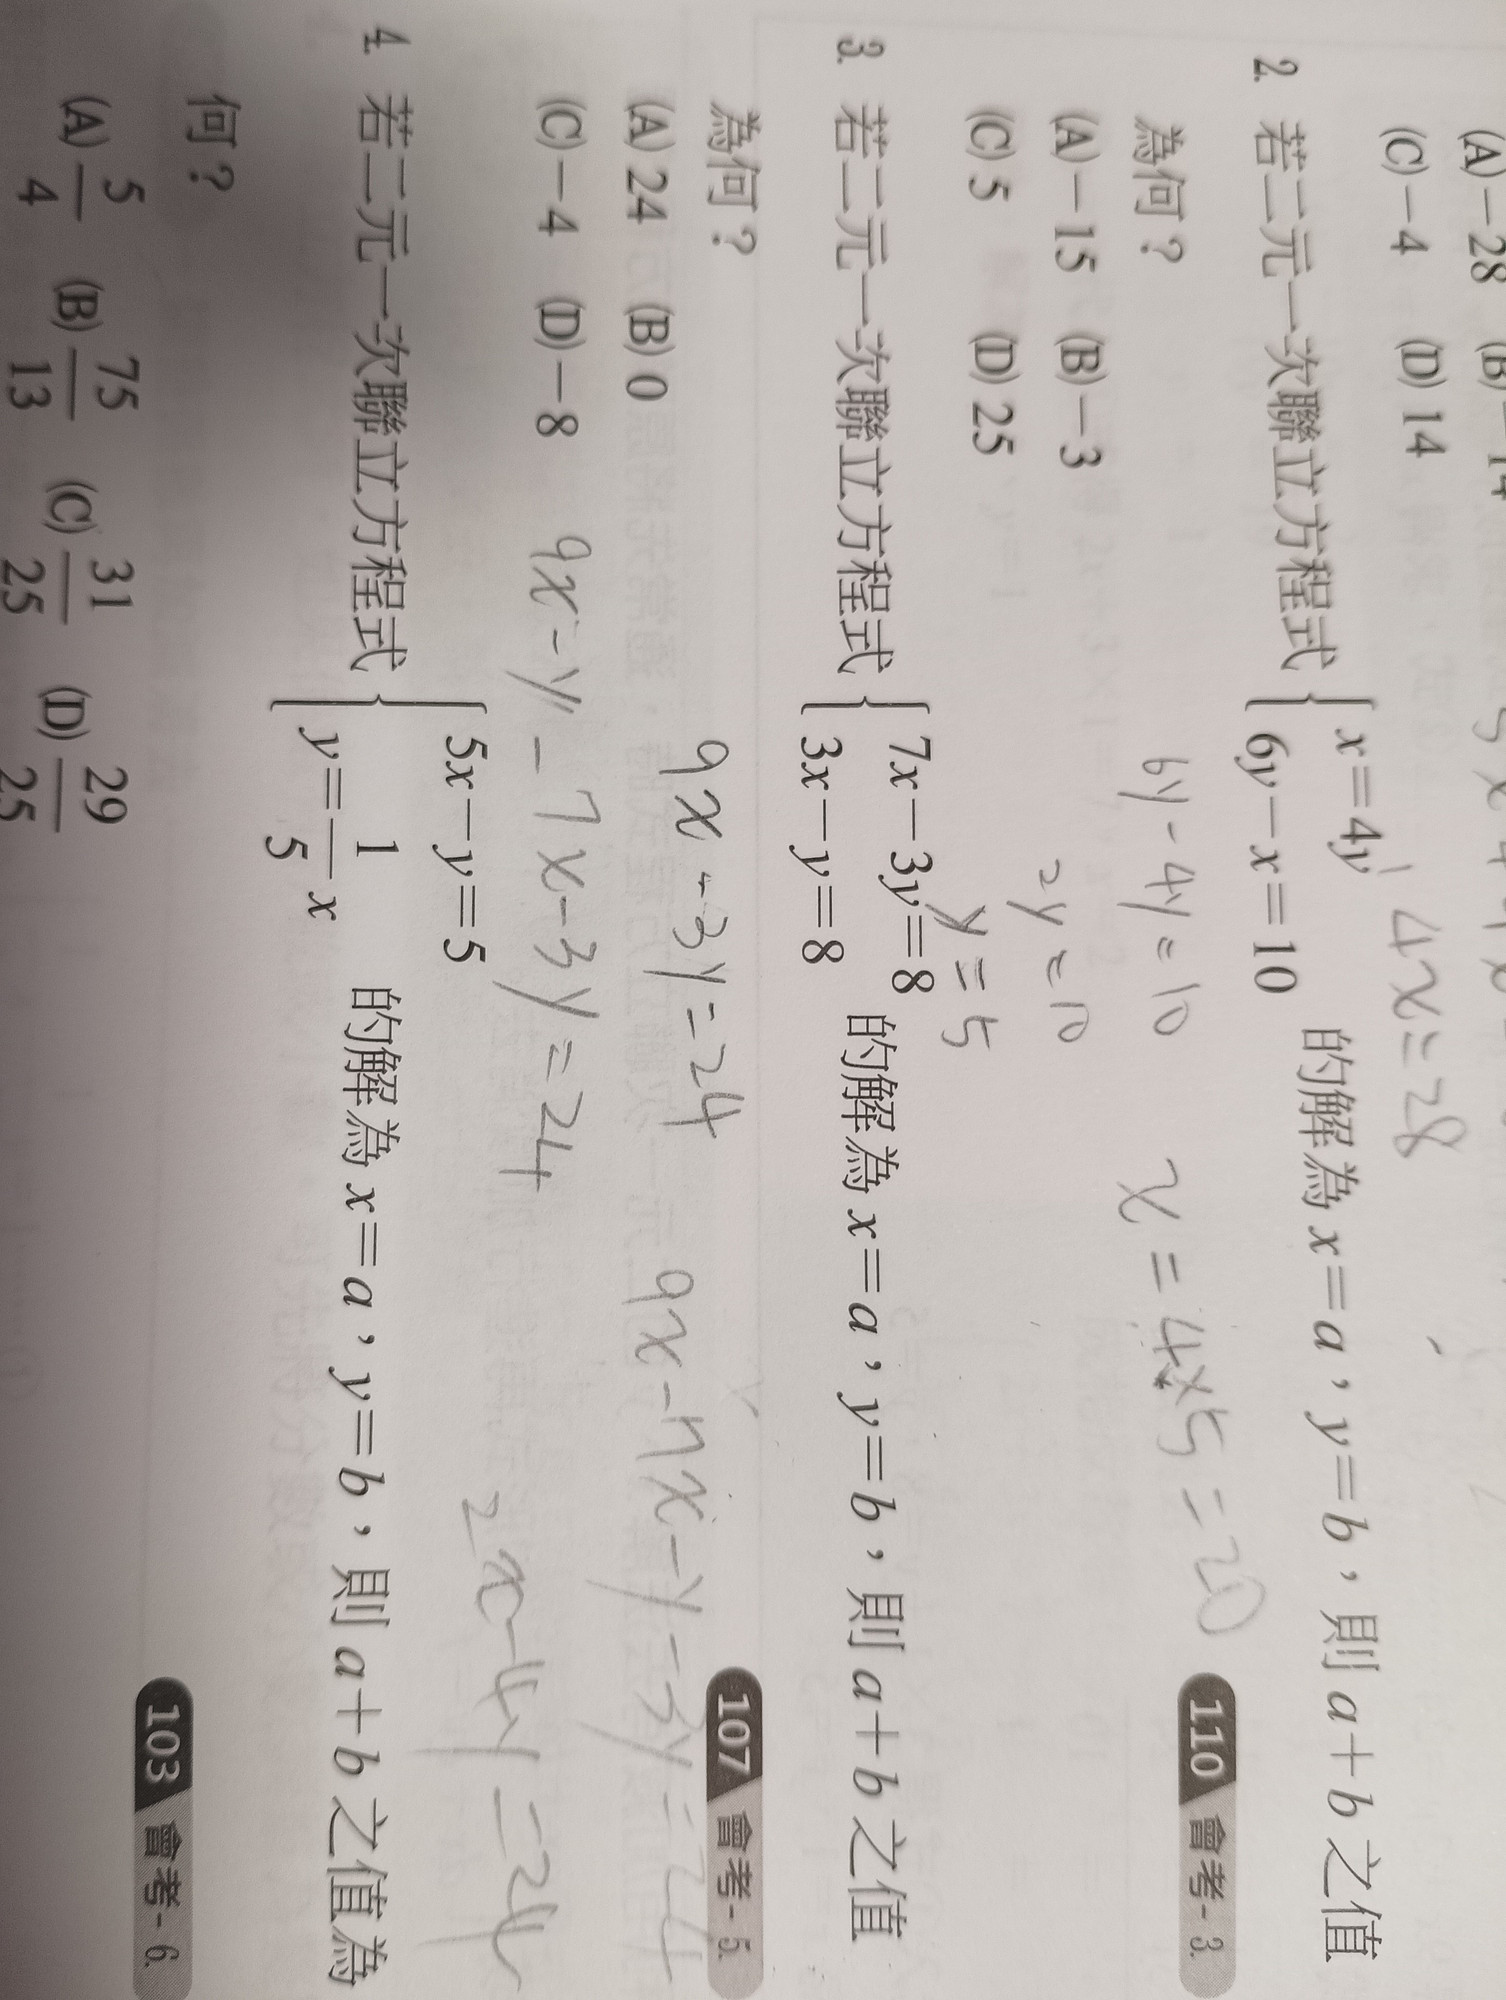 (A)－28 (B)－14
(C)－4 (D) 14
4x=28
2. 若二元一次聯立方程式{x＝4y 6y－x＝10 的解為 x＝a，y＝b，則 a＋b 之值
為何？
110 會考 - 3.
(A)－15 (B)－3
(C) 5 (D) 25
6y-4y=10
2y=10
y=5
x=4×5=20
3. 若二元一次聯立方程式{7x－3y＝8 3x－y＝8 的解為 x＝a，y＝b，則 a＋b 之值
為何？
107 會考 - 5.
(A) 24 (B) 0
(C)－4 (D)－8
9x-3y=24
9x-y-7x-3y=24
9x-7x-y-3y=24
2x-4y=24
4. 若二元一次聯立方程式{5x－y＝5 y＝1/5 x 的解為 x＝a，y＝b，則 a＋b 之值為
何？
103 會考 - 6.
(A) 5/4 (B) 75/13 (C) 31/25 (D) 29/25